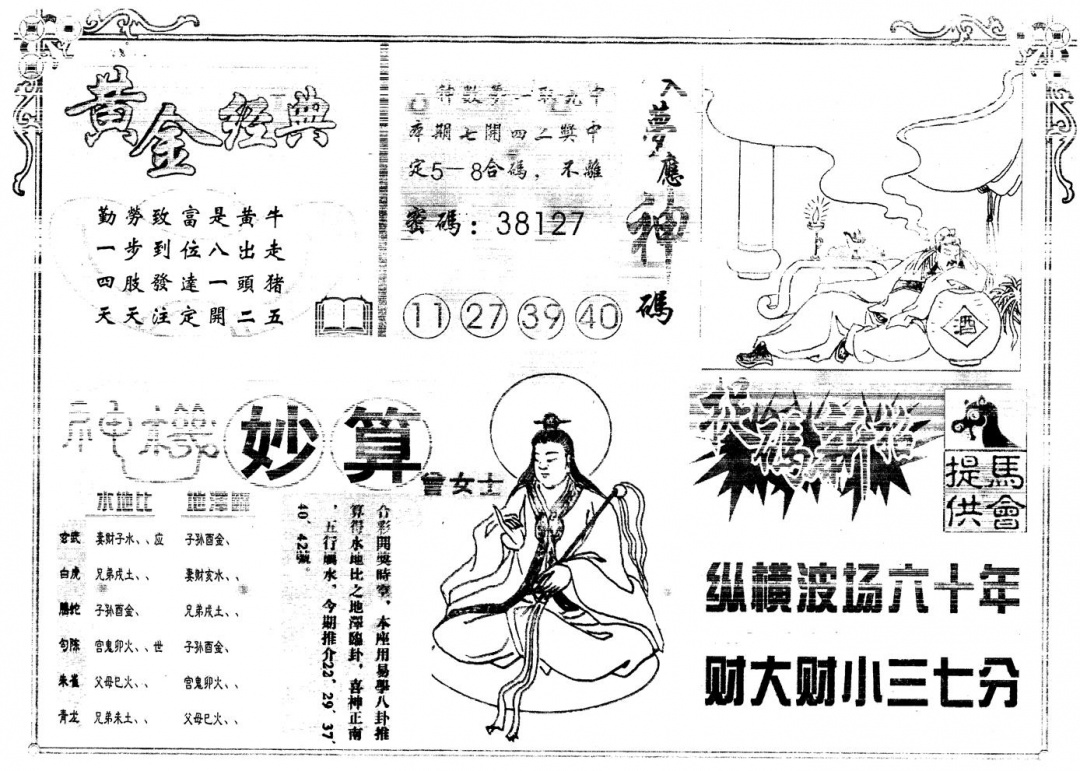 黄金經典
勤勞致富是黄牛
一步到位八出走
四肢發達一頭猪
天天注定開二五
期七開四二獎中
定5－8合碼，不離
密碼：38127
11 27 39 40
入夢應神碼
酒
神機妙算
曾女士
水地比 地澤臨
玄武 妻财子水、、应 子孙酉金、
白虎 兄弟戌土、、 妻财亥水、、
螣蛇 子孙酉金、 兄弟戌土、、
句陈 官鬼卯火、、世 子孙酉金、
朱雀 父母巳火、、 官鬼卯火、、
青龙 兄弟未土、、 父母巳火、、
合彩開獎時空，本座用易學八卦推
算得水地比之地澤臨卦，喜神正南
，五行屬水，今期推介22、29、37、
40、42號。
馬會
提供
纵横波场六十年
财大财小三七分